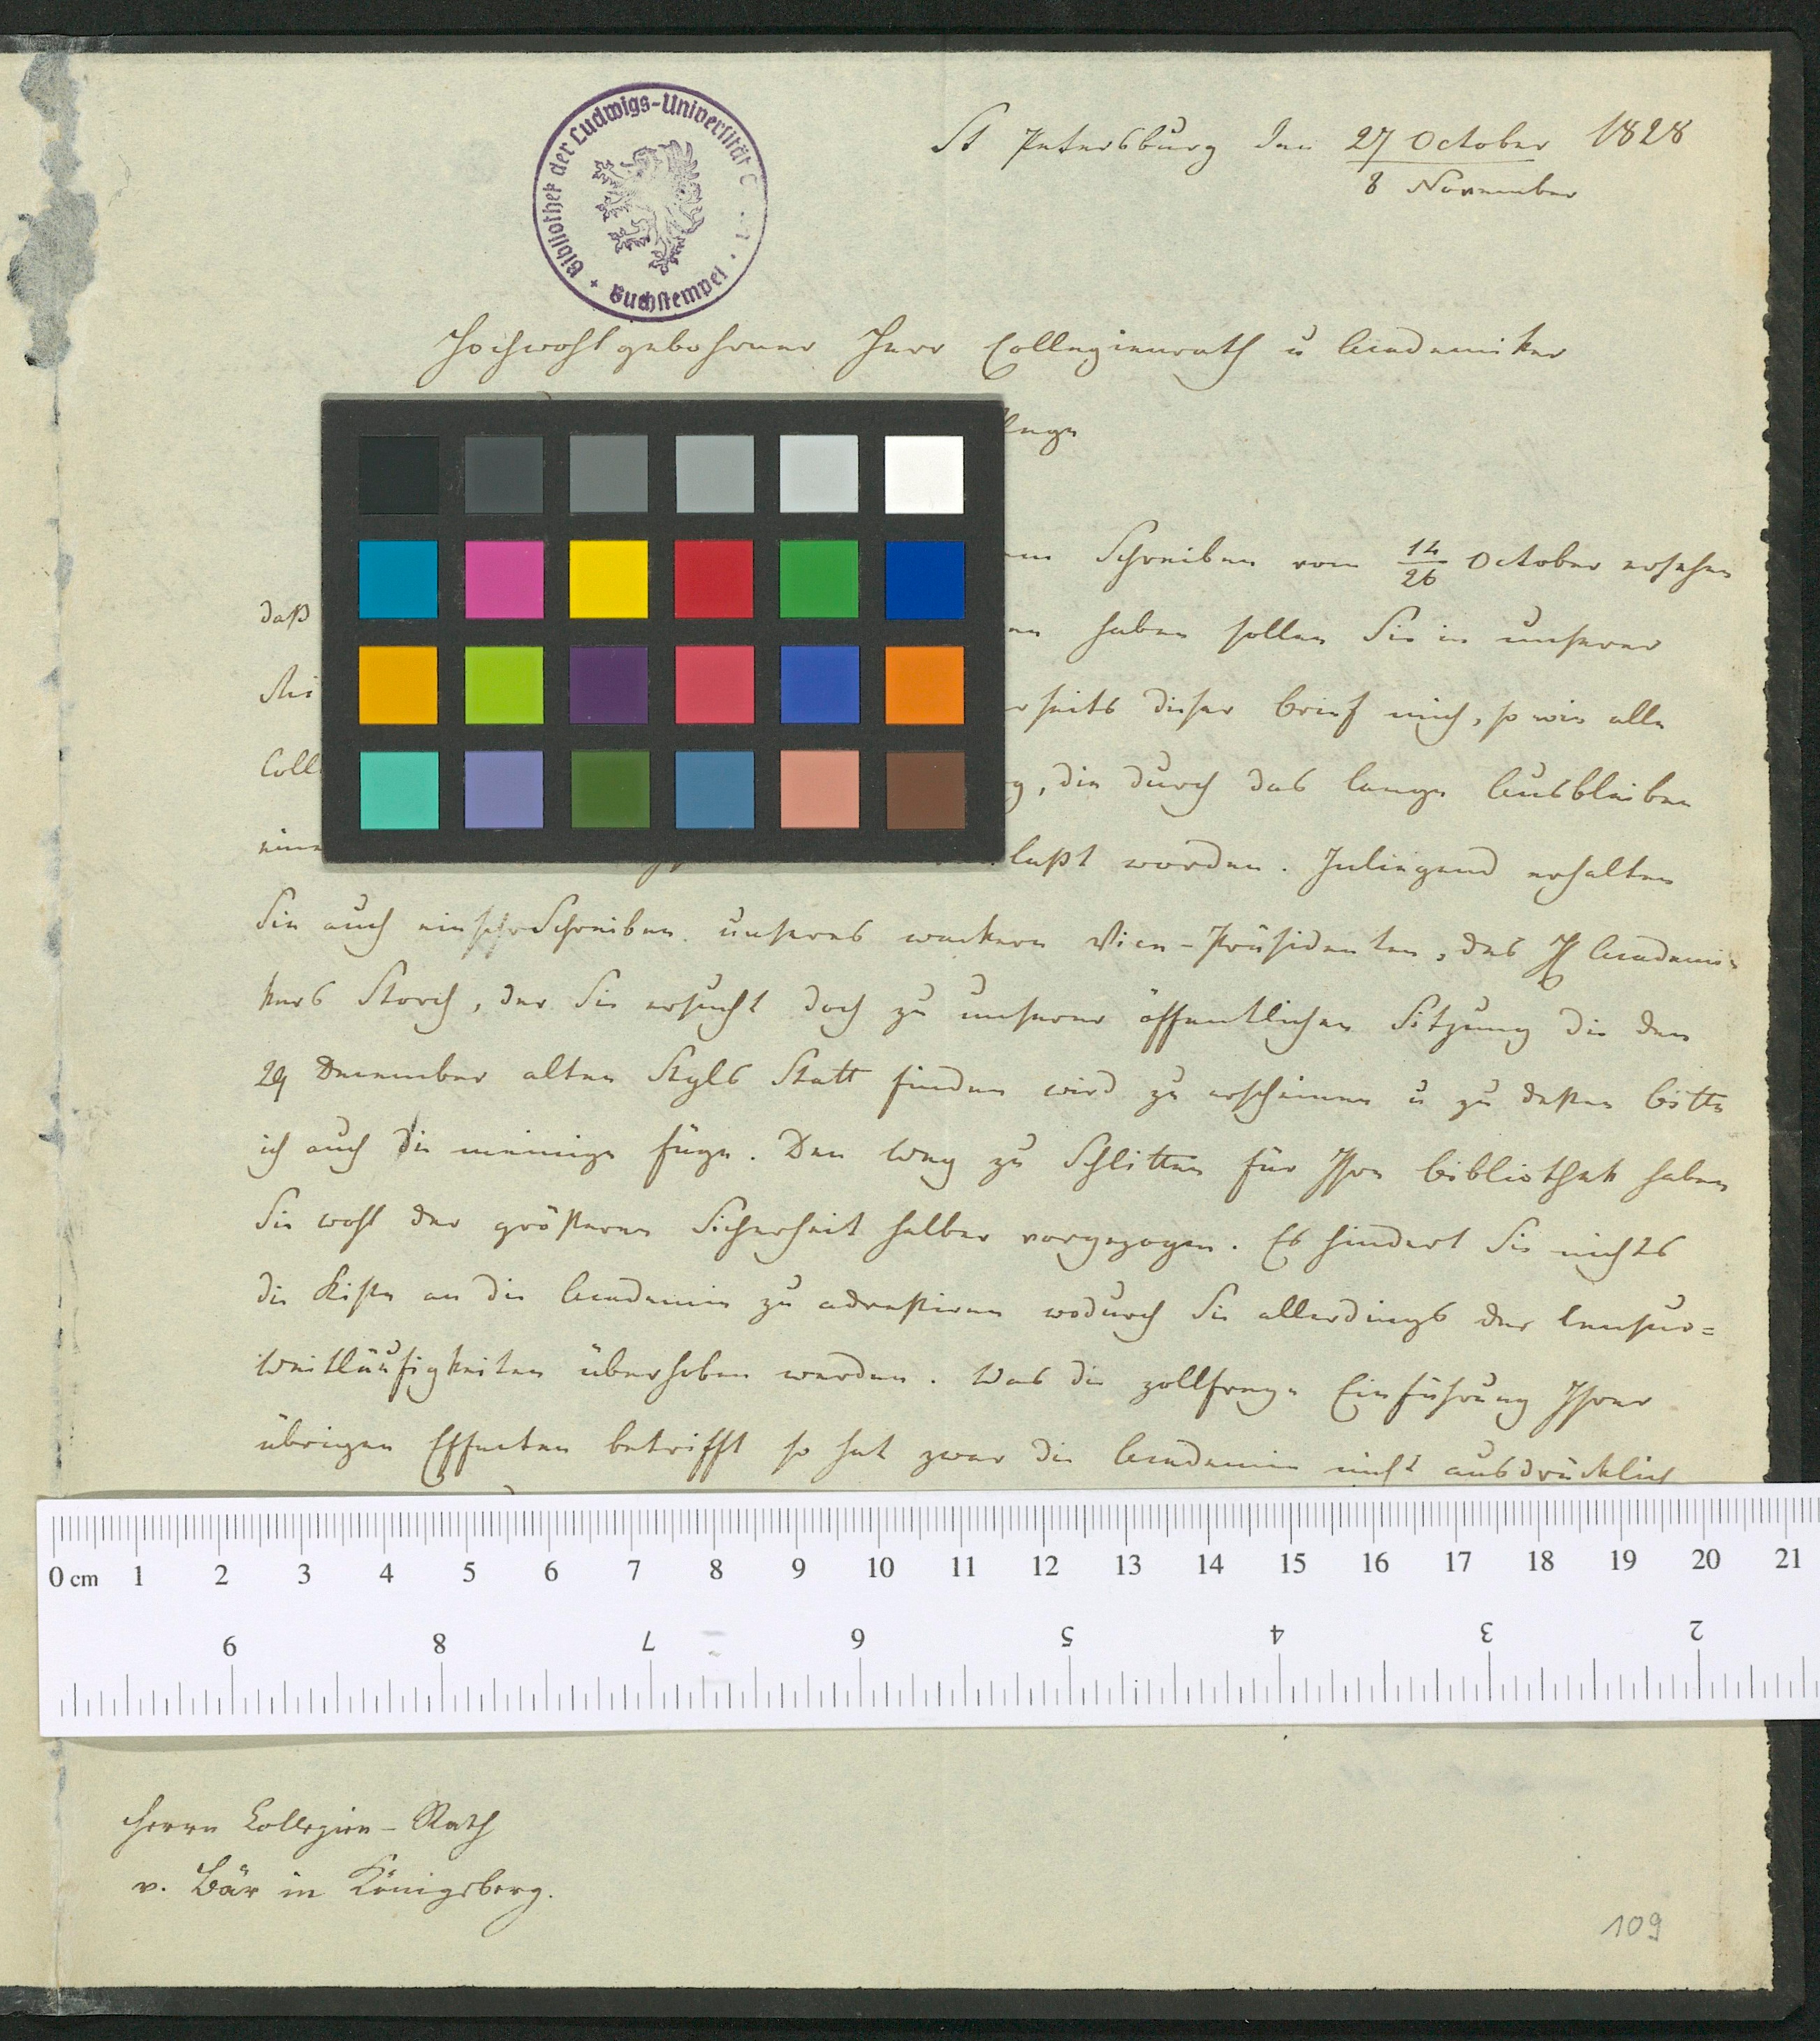 Bibliothek der Ludwigs-Universität
Buchstempel
St Petersburg den 27 October 1828
8 November
Hochwohlgebohrner Herr Collegienrath u Academiker
llege
em Schreiben vom 14/26 October ersehen
daß
en haben sollen Sie in unserer
rseits dieser Brief mich, so wie alle
Coll
g, die durch das lange Ausbleiben
eine
laßt worden. Inliegend erhalten
Sie auch ein Schreiben unseres wackern Vice-Präsidenten, des H Academi-
kers Storch, der Sie ersucht doch zu unserer öffentlichen Sitzung die den
29 December alten Styls Statt finden wird zu erscheinen u zu dessen Bitte
ich auch die meinige füge. Den Weg zu Schlitten für Ihre Bibliothek haben
Sie wohl der größeren Sicherheit halber vorgezogen. Es hindert Sie nichts
die Kiste an die Academie zu adressiren wodurch Sie allerdings der Censur=
Weitläufigkeiten überhoben werden. Was die zollfreye Einführung Ihrer
übrigen Effecten betrifft so hat zwar die Academie nicht ausdrücklich
0 cm 1 2 3 4 5 6 7 8 9 10 11 12 13 14 15 16 17 18 19 20 21
9 8 7 6 5 4 3 2
Herrn Collegien-Rath
v. Bär in Königsberg.
109